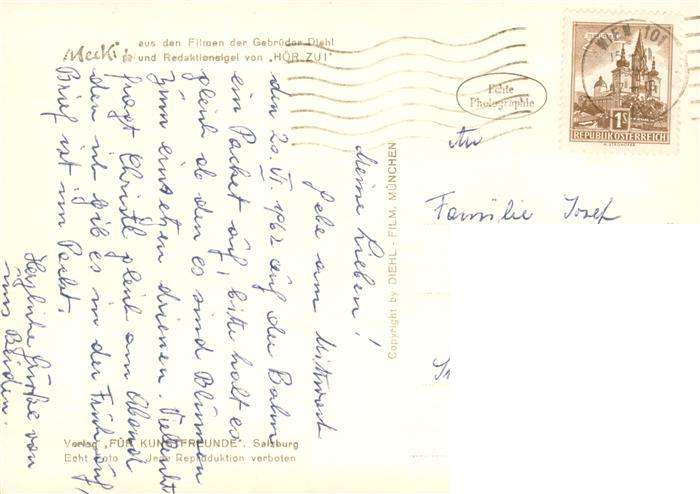 Mecki aus den Filmen der Gebrüder Diehl
und Redaktionsigel von „HÖR ZU!"
WIEN 101
Echte
Photographie
1S
REPUBLIK ÖSTERREICH
An
Familie Josef
Copyright by DIEHL - FILM, MÜNCHEN
Meine Lieben!
Gebe am Mittwoch
den 20. VI. 1962 auf der Bahn
ein Packet auf, bitte holt es
gleich ab den es sind Blumen
zum einsetzen drienen. Vieleicht
fragt Christl gleich am Abend
den ich gib es in der Früh auf,
Brief ist im Packt.
Herzliche Grüße von
uns Beiden.
Verlag „FÜR KUNSTFREUNDE". Salzburg
Echt Foto Jede Reproduktion verboten